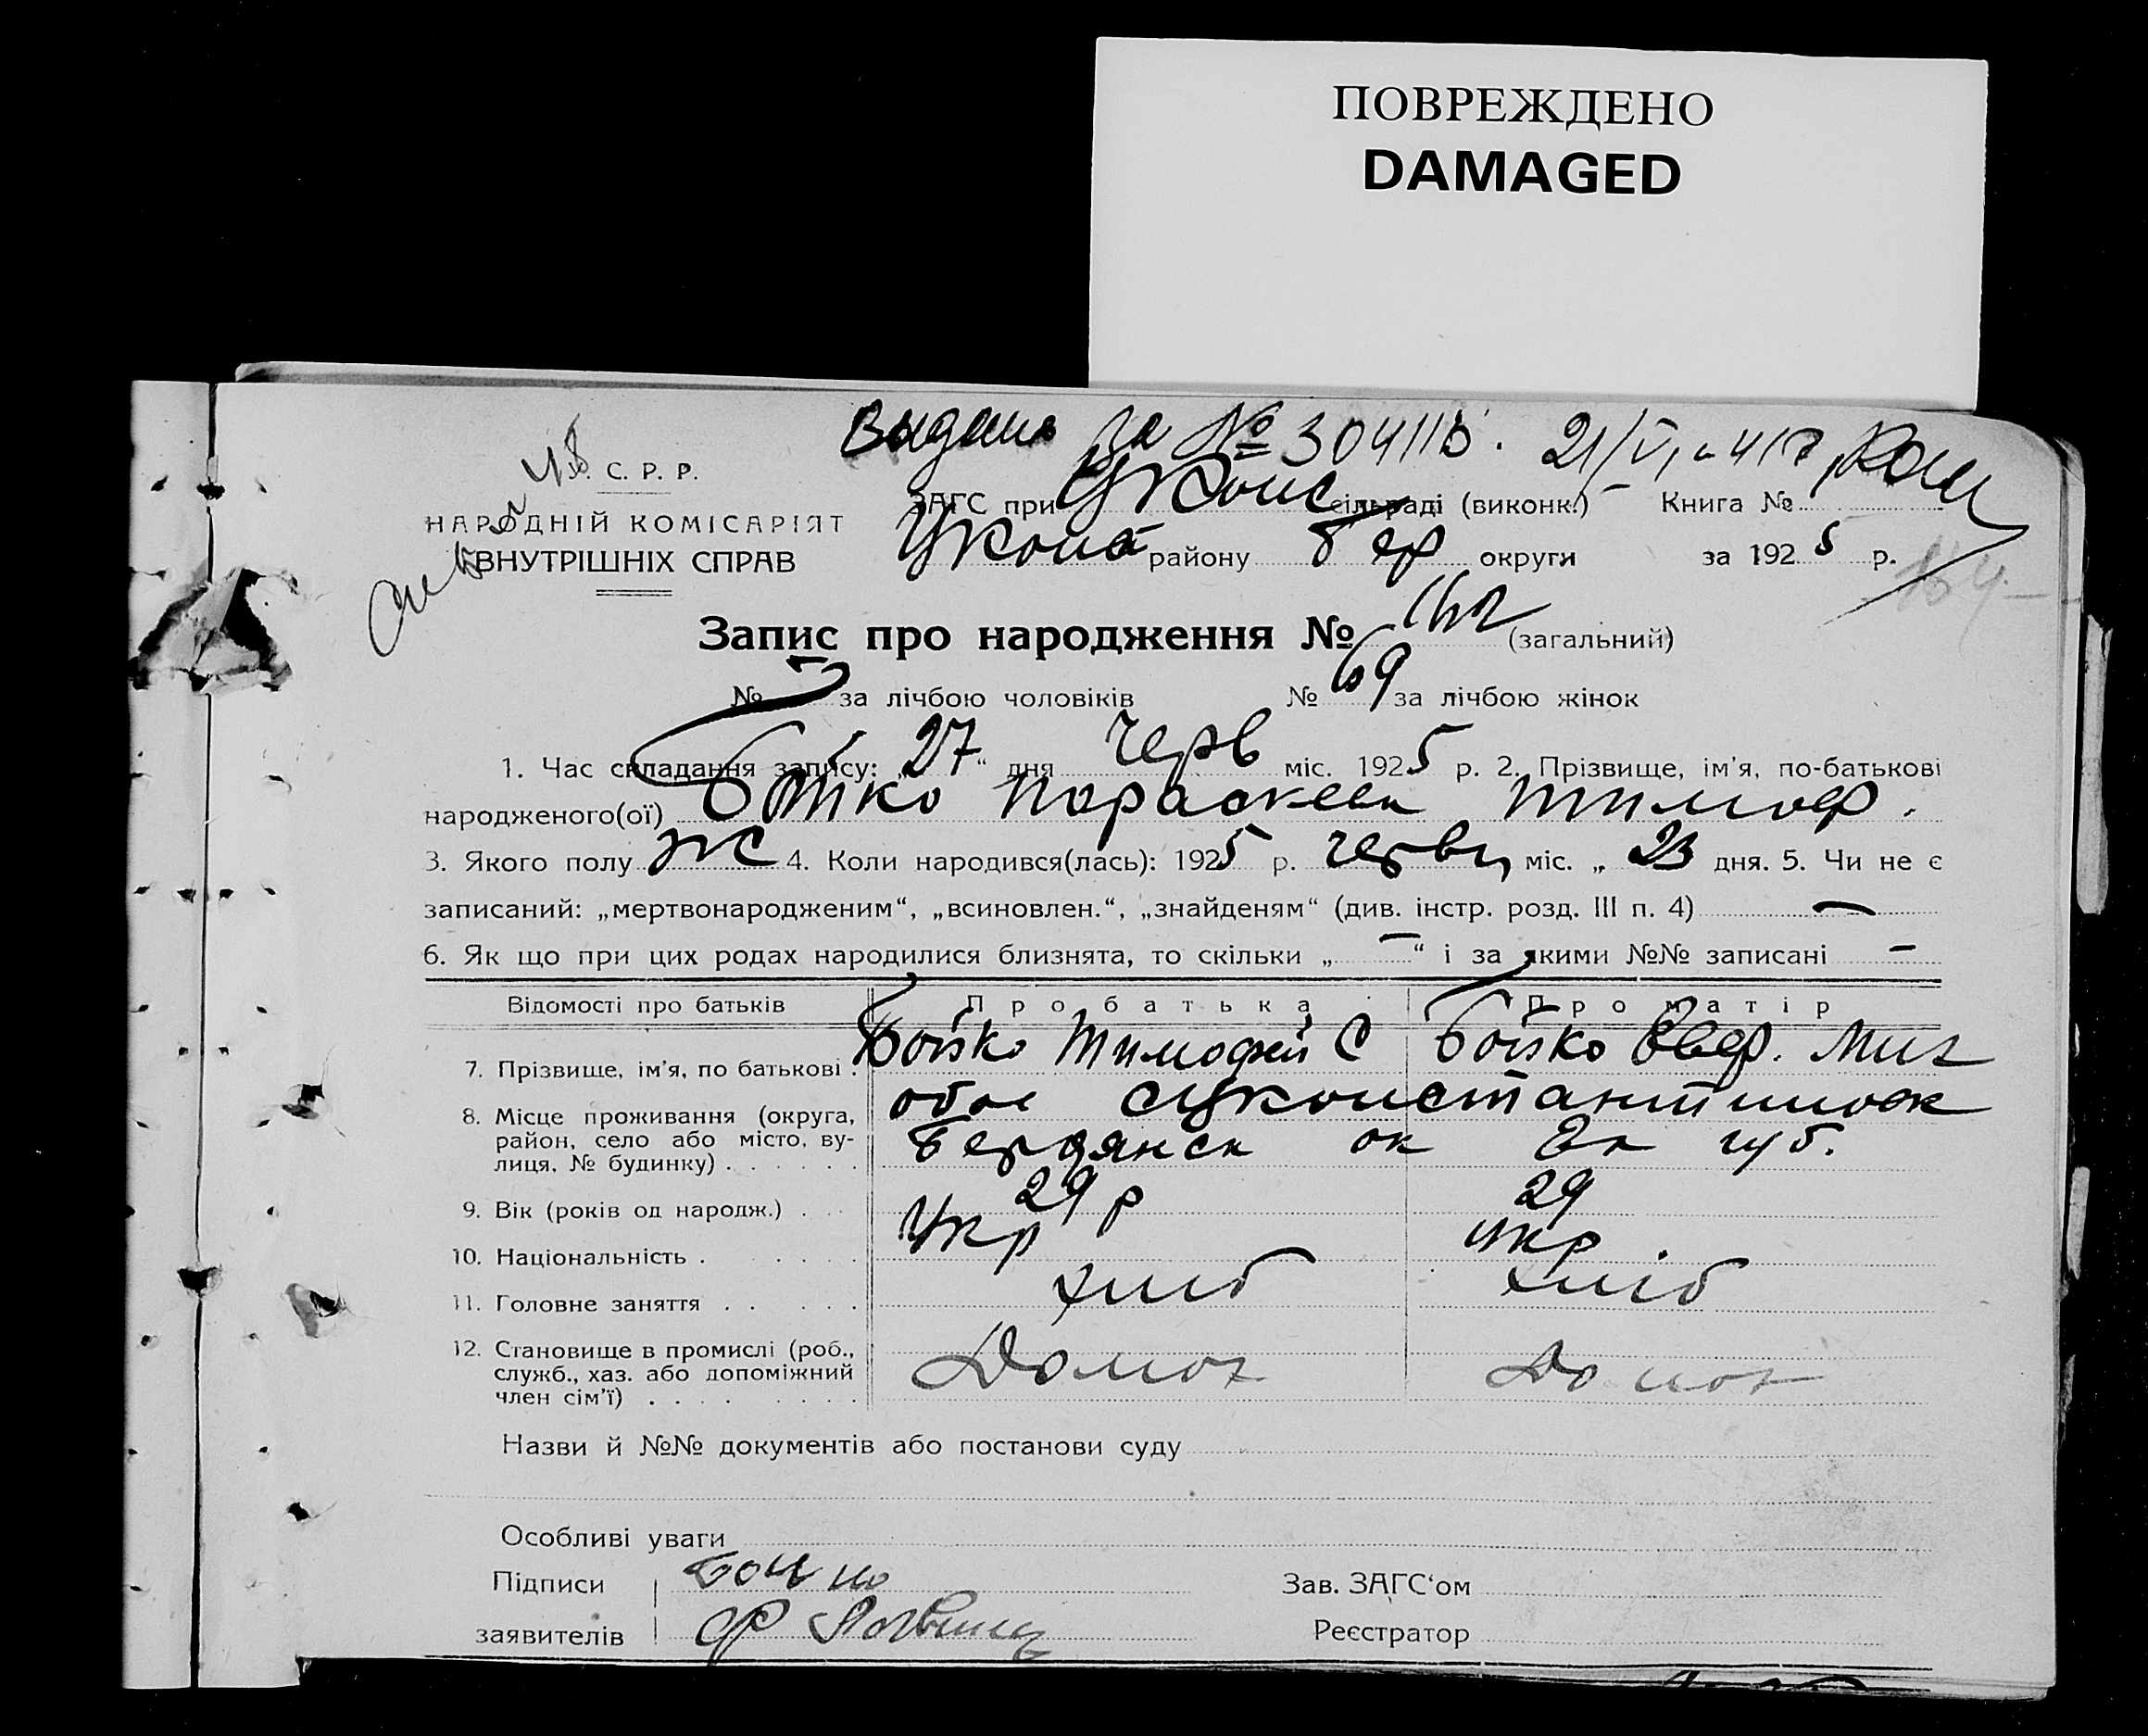 ПОВРЕЖДЕНО
DAMAGED
Выдано за № 304115. 21/VI-41 г
С. Р. Р.
НАРОДНІЙ КОМІСАРІЯТ
ВНУТРІШНІХ СПРАВ
ЗАГС при ЦКонс сільраді (виконк.) Книга №
ЦКонс району Бер округи за 1925 р.
Запис про народження № (загальний)
№ за лічбою чоловіків № 69 за лічбою жінок
1. Час складання запису: „27“ дня Черв міс. 1925 р. 2. Прізвище, ім'я, по-батькові
народженого(ої) Бойко Параскева Тимоф.
3. Якого полу ж 4. Коли народився(лась): 1925 р. червц міс. „ 23 дня. 5. Чи не є
записаний: „мертвонародженим“, „всиновлен.“, „знайденям“ (див. інстр. розд. III п. 4) —
6. Як що при цих родах народилися близнята, то скільки „ — “ і за якими №№ записані —
Відомості про батьків Про батька Про матір
7. Прізвище, ім'я, по батькові. Бойко Тимофей С Бойко Мих
8. Місце проживання (округа, обое с Цконстантиновк
район, село або місто, ву-
лиця, № будинку) . . . . . . Бердянск ок Ек губ.
9. Вік (років од народж.) . . . 29 р 29
10. Національність . . . . . Укр укр.
11. Головне заняття . . . . . хліб хліб
12. Становище в промислі (роб.,
служб., хаз. або допоміжний Домох Домох
член сім'ї) . . . . . . . .
Назви й №№ документів або постанови суду
Особливі уваги
Підписи Бойко Зав. ЗАГС‘ом
заявителів Реєстратор